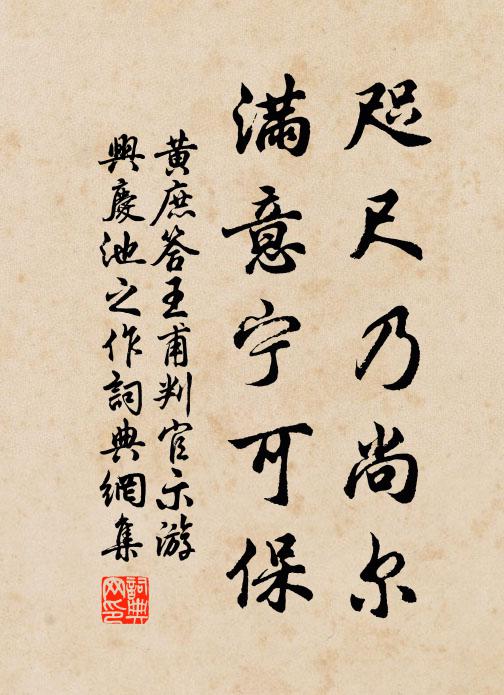 咫尺乃尚尔
满意宁可保
黄庶答王甫判官示游
興慶池之作詞典網集
詞典網印